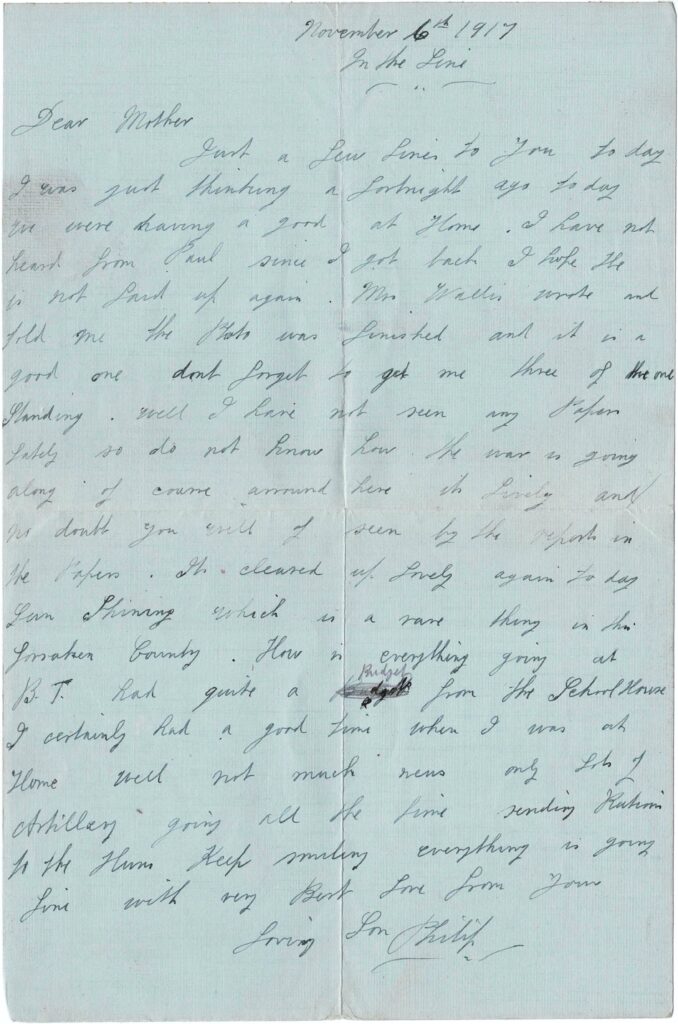 November 6th 1917
In the Line
Dear Mother
Just a few lines to You to day
I was just thinking a fortnight ago to day
we were having a good at Home . I have not
heard from Paul since I got back I hope He
is not Laid up again . Mrs Wallis wrote and
told me the Photo was finished and it is a
good one dont forget to get me three of the one
Standing . well I have not seen any Papers
Lately so do not know how the war is going
along of course arround here its Lively and
no doubt you will of seen by the reports in
the Papers . Its cleared up Lovely again to day
Sun Shining which is a rare thing in this
forsaken County . How is everything going at
B.T. had quite a Budget from the School House
I certainly had a good time when I was at
Home well not much news only lots of
Artillery going all the time sending Rations
to the Huns Keep smiling everything is going
fine with very Best Love from Your
Loving Son Philip